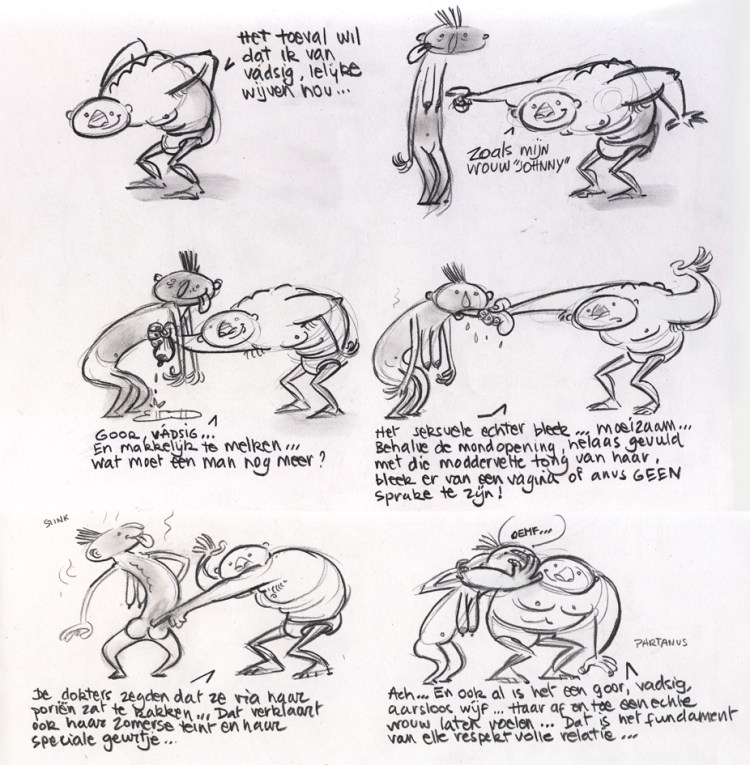 Het toeval wil
dat ik van
vadsig, lelijke
wijven hou...
Zoals mijn
vrouw "JOHNNY"
GOOR, VADSIG...
En makkelijk te melken...
Wat moet een man nog meer?
Het seksuele echter bleek... moeizaam...
Behalve de mondopening, helaas gevuld
met die moddervette tong van haar,
bleek er van een vagina of anus GEEN
sprake te zijn!
STINK
De dokters zegden dat ze via haar
poriën zat te kakken... Dat verklaart
ook haar zomerse teint en haar
speciale geurtje...
OEMF...
PARTANUS
Ach... En ook al is het een goor, vadsig,
aarsloos wijf... Haar af en toe een echte
vrouw laten voelen... Dat is het fundament
van elke respektvolle relatie...